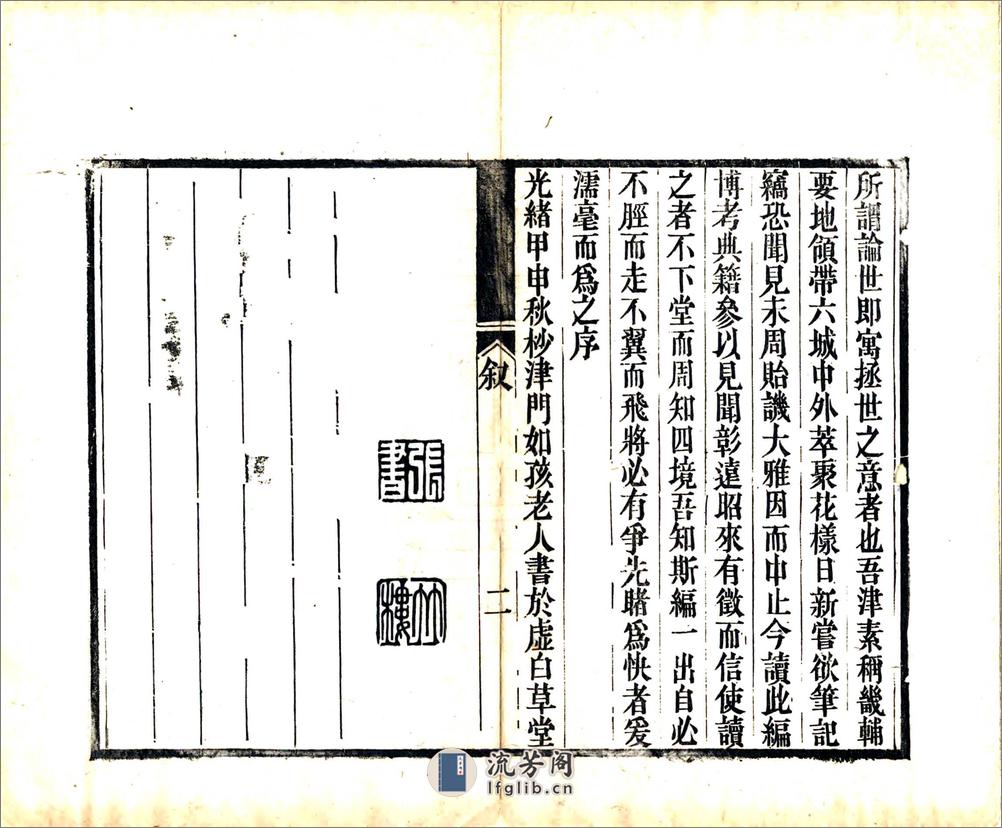 所謂論世即寓拯世之意者也吾津素稱畿輔
要地領帶六城中外萃聚花樣日新嘗欲筆記
竊恐聞見未周貽譏大雅因而中止今讀此編
博考典籍參以見聞彰遠昭來有徵而信使讀
之者不下堂而周知四境吾知斯編一出自必
不脛而走不翼而飛將必有爭先睹爲快者爰
濡毫而爲之序
光緒甲申秋杪津門如孩老人書於虛白草堂
叙
二
流芳阁
lfglib.cn